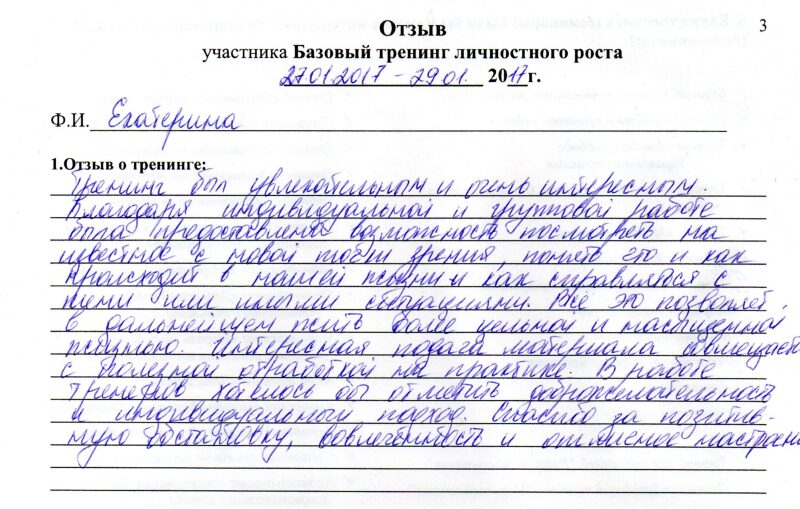 3
Отзыв
участника Базовый тренинг личностного роста
27.01.2017 - 29.01. 2017г.
Ф.И. Екатерина
1.Отзыв о тренинге:
Тренинг был увлекательным и очень интересным.
Благодаря индивидуальной и групповой работе
была предоставлена возможность посмотреть на
известное с новой точки зрения, понять что и как
происходит в нашей жизни и как справляться с
теми или иными ситуациями. Всё это позволяет
в дальнейшем жить более цельной и насыщенной
жизнью. Интересная подача материала совмещается
с полезной отработкой на практике. В работе
тренеров хотелось бы отметить доброжелательность
и индивидуальный подход. Спасибо за позитив-
ную обстановку, вовлеченность и отличное настроение